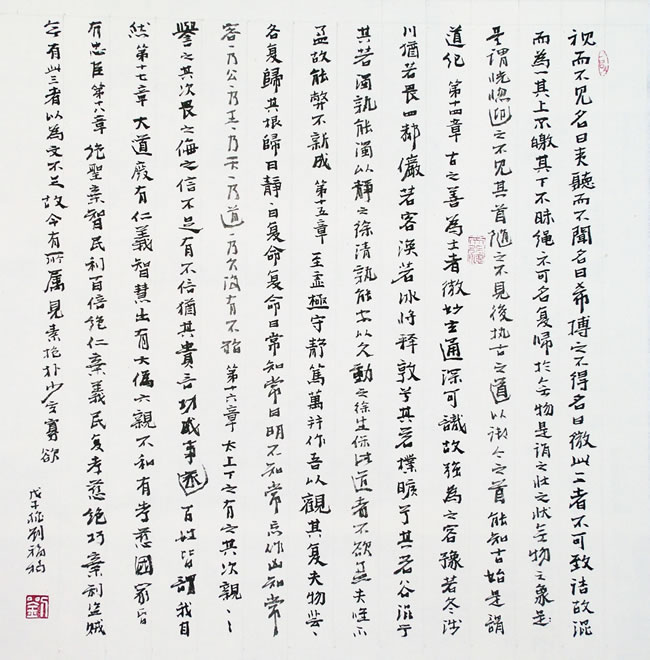 視而不見名曰夷聽而不聞名曰希搏之不得名曰微此三者不可致詰故混
而為一其上不皦其下不昧绳、不可名复歸於无物是謂之狀之狀无物之象是
是謂恍惚迎之不見其首隨之不見後执古之道以御今之首能知古始是謂
道纪 第十四章 古之善為士者微妙玄通深可識故强為之容豫若冬涉
川猶若畏四鄰儼若客涣若冰将释敦兮其若樸曠兮其若谷混兮
其若濁孰能濁以靜之徐清孰能安以久動之徐生保此道者不欲盈夫惟不
盈故能弊不新成 第十五章 至虚極守静篤萬并作吾以觀其复夫物芸、
各复歸其根歸曰靜、曰复命复命曰常知常曰明不知常妄作凶知常
容、乃公、乃王、乃天、乃道、乃久没有不殆 第十六章 太上下之有之其次親、、
譽之其次畏之侮之信不足有不信猶其貴言功成事遂百姓皆謂我自
然第十七章 大道廢有仁義智慧出有大偽六親不和有孝慈國家昏
有忠臣第十八章 绝聖棄智民利百倍绝仁棄義民复孝慈绝巧棄利盗賊
无有此三者以為文不足故令有所属見素抱朴少私寡欲
戊子秋劉福
劉